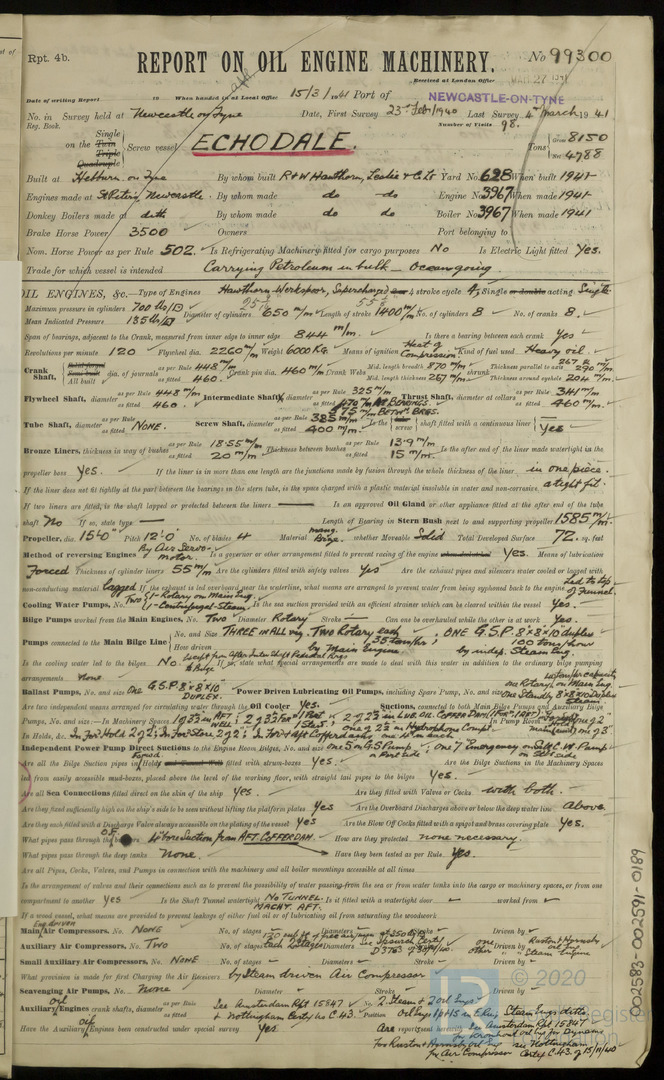 Rpt. 4b.
REPORT ON OIL ENGINE MACHINERY.
No 99300
Received at London Office
MAR 27 1941
Date of writing Report 19 When handed in at Local Office 15/3/1941 Port of NEWCASTLE-ON-TYNE
No. in Survey held at Newcastle on Tyne Date, First Survey 23rd Feb/1940 Last Survey 4th March 1941
Reg. Book. Number of Visits 98.
on the Single Twin Triple Quadruple Screw vessel ECHODALE. Tons Gross 8150 Net 4788
Built at Hebburn on Tyne By whom built R & W Hawthorn, Leslie & Co Ld Yard No. 628 When built 1941
Engines made at St Peters, Newcastle By whom made do do Engine No. 3967 When made 1941
Donkey Boilers made at ditto By whom made do do Boiler No. 3967 When made 1941
Brake Horse Power 3500 Owners Port belonging to
Nom. Horse Power as per Rule 502. Is Refrigerating Machinery fitted for cargo purposes No Is Electric Light fitted Yes.
Trade for which vessel is intended Carrying Petroleum in bulk — Oceangoing.
OIL ENGINES, &c.—Type of Engines Hawthorn-Werkspoor, Supercharged 2 or 4 stroke cycle 4 Single or double acting Single
Maximum pressure in cylinders 700 lbs/□" Diameter of cylinders 650 m/m Length of stroke 1400 m/m No. of cylinders 8 No. of cranks 8.
Mean Indicated Pressure 135 lbs/□"
Span of bearings, adjacent to the Crank, measured from inner edge to inner edge 844 m/m. Is there a bearing between each crank Yes
Revolutions per minute 120 Flywheel dia. 2260 m/m Weight 6000 Kg. Means of ignition Heat of Compression Kind of fuel used Heavy oil.
Crank Shaft, Solid forged Semi built All built dia. of journals as per Rule 448 m/m as fitted 460. Crank pin dia. 460 m/m Crank Webs Mid. length breadth 870 m/m Mid. length thickness 267 m/m Thickness parallel to axis 267 & 290 m/m Thickness around eyehole 204 m/m
Flywheel Shaft, diameter as per Rule 448 m/m as fitted 460. Intermediate Shafts, diameter as per Rule 325 m/m as fitted 470 m/m At Bearings. 475 m/m Betwn Brgs. Thrust Shaft, diameter at collars as per Rule 341 m/m as fitted 460 m/m
Tube Shaft, diameter as per Rule as fitted NONE. Screw Shaft, diameter as per Rule 385 m/m as fitted 400 m/m. Is the tube screw shaft fitted with a continuous liner Yes
Bronze Liners, thickness in way of bushes as per Rule 18.55 m/m as fitted 20 m/m Thickness between bushes as per Rule 13.9 m/m as fitted 15 m/m. Is the after end of the liner made watertight in the
propeller boss Yes. If the liner is in more than one length are the junctions made by fusion through the whole thickness of the liner in one piece.
If the liner does not fit tightly at the part between the bearings on the stern tube, is the space charged with a plastic material insoluble in water and non-corrosive. a tight fit.
If two liners are fitted, is the shaft lapped or protected between the liners — Is an approved Oil Gland or other appliance fitted at the after end of the tube
shaft No If so, state type — Length of Bearing in Stern Bush next to and supporting propeller 1585 m/m.
Propeller, dia. 15'0" Pitch 12'0" No. of blades 4 Material Mang. Bronze. whether Moveable Solid Total Developed Surface 72 sq. feet
Method of reversing Engines By Air Servo-motor. Is a governor or other arrangement fitted to prevent racing of the engine Yes. Means of lubrication
Forced Thickness of cylinder liners 55 m/m Are the cylinders fitted with safety valves Yes Are the exhaust pipes and silencers water cooled or lagged with
non-conducting material lagged If the exhaust is led overboard near the waterline, what means are arranged to prevent water from being syphoned back to the engine Led to top of Funnel.
Cooling Water Pumps, No. Two 1-Rotary on Main Eng. 1-Centrifugal-Steam. Is the sea suction provided with an efficient strainer which can be cleared within the vessel Yes.
Bilge Pumps worked from the Main Engines, No. Two Diameter Rotary Stroke — Can one be overhauled while the other is at work Yes.
Pumps connected to the Main Bilge Line No. and Size THREE IN ALL viz. Two Rotary each 35 tons/hr; ONE G.S.P. 8"x8"x10" duplex 100 tons/hour
How driven by Main Engine by indep. Steam Eng.
Is the cooling water led to the bilges No. If so, state what special arrangements are made to deal with this water in addition to the ordinary bilge pumping
arrangements none
Ballast Pumps, No. and size One G.S.P. 8"x8"x10" DUPLEX. Power Driven Lubricating Oil Pumps, including Spare Pump, No. and size one Rotary on Main Eng. One Standby 8"x8"x10" Duplex Steam
Are two independent means arranged for circulating water through the Oil Cooler Yes. Suctions, connected to both Main Bilge Pumps and Auxiliary
Pumps, No. and size:—In Machinery Spaces
In Holds, &c. In For'd Hold 2 of 2"; In For'd Store 2 of 2";
Independent Power Pump Direct Suctions to the Engine Room Bilges, No. and size one 5" on G.S Pump; one 7" Emergency on
Are all the Bilge Suction pipes in Holds and Tunnel Well fitted with strum-boxes Yes. Are the Bilge Suctions in the Machinery Spaces
led from easily accessible mud-boxes, placed above the level of the working floor, with straight tail pipes to the bilges Yes.
Are all Sea Connections fitted direct on the skin of the ship Yes. Are they fitted with Valves or Cocks with both.
Are they fixed sufficiently high on the ship's side to be seen without lifting the platform plates Yes Are the Overboard Discharges above or below the deep water line Above.
Are they each fitted with a Discharge Valve always accessible on the plating of the vessel Yes Are the Blow Off Cocks fitted with a spigot and brass covering plate Yes.
What pipes pass through the bunkers O.F. 4" bore Suction from AFT. COFFERDAM. How are they protected none necessary.
What pipes pass through the deep tanks None. Have they been tested as per Rule Yes.
Are all Pipes, Cocks, Valves, and Pumps in connection with the machinery and all boiler mountings accessible at all times
Is the arrangement of valves and their connections such as to prevent the possibility of water passing from the sea or from water tanks into the cargo or machinery spaces, or from one
compartment to another Yes Is the Shaft Tunnel watertight NO TUNNEL. MACHY. AFT. Is it fitted with a watertight door — worked from
If a wood vessel, what means are provided to prevent leaking of either fuel oil or lubricating oil from saturating the woodwork
Main Air Compressors, No. NONE No. of stages Diameters Stroke Driven by
Auxiliary Air Compressors, No. Two No. of stages each 2 stages Diameters See Ipswich Certs Stroke Driven by one Ruston & Hornsby other Steam Engine
Small Auxiliary Air Compressors, No. NONE No. of stages Diameters Stroke Driven by
What provision is made for first Charging the Air Receivers by Steam driven Air Compressor
Scavenging Air Pumps, No. None Diameter Stroke Driven by
Auxiliary Oil Engines crank shafts, diameter as per Rule as fitted See Amsterdam Rpt 15847 & Nottingham Certif No C.43. No. 2 Steam & 2 oil Engs Position
Have the Auxiliary Oil Engines been constructed under special survey Yes Are
002583-002591-0189
LR © 2020